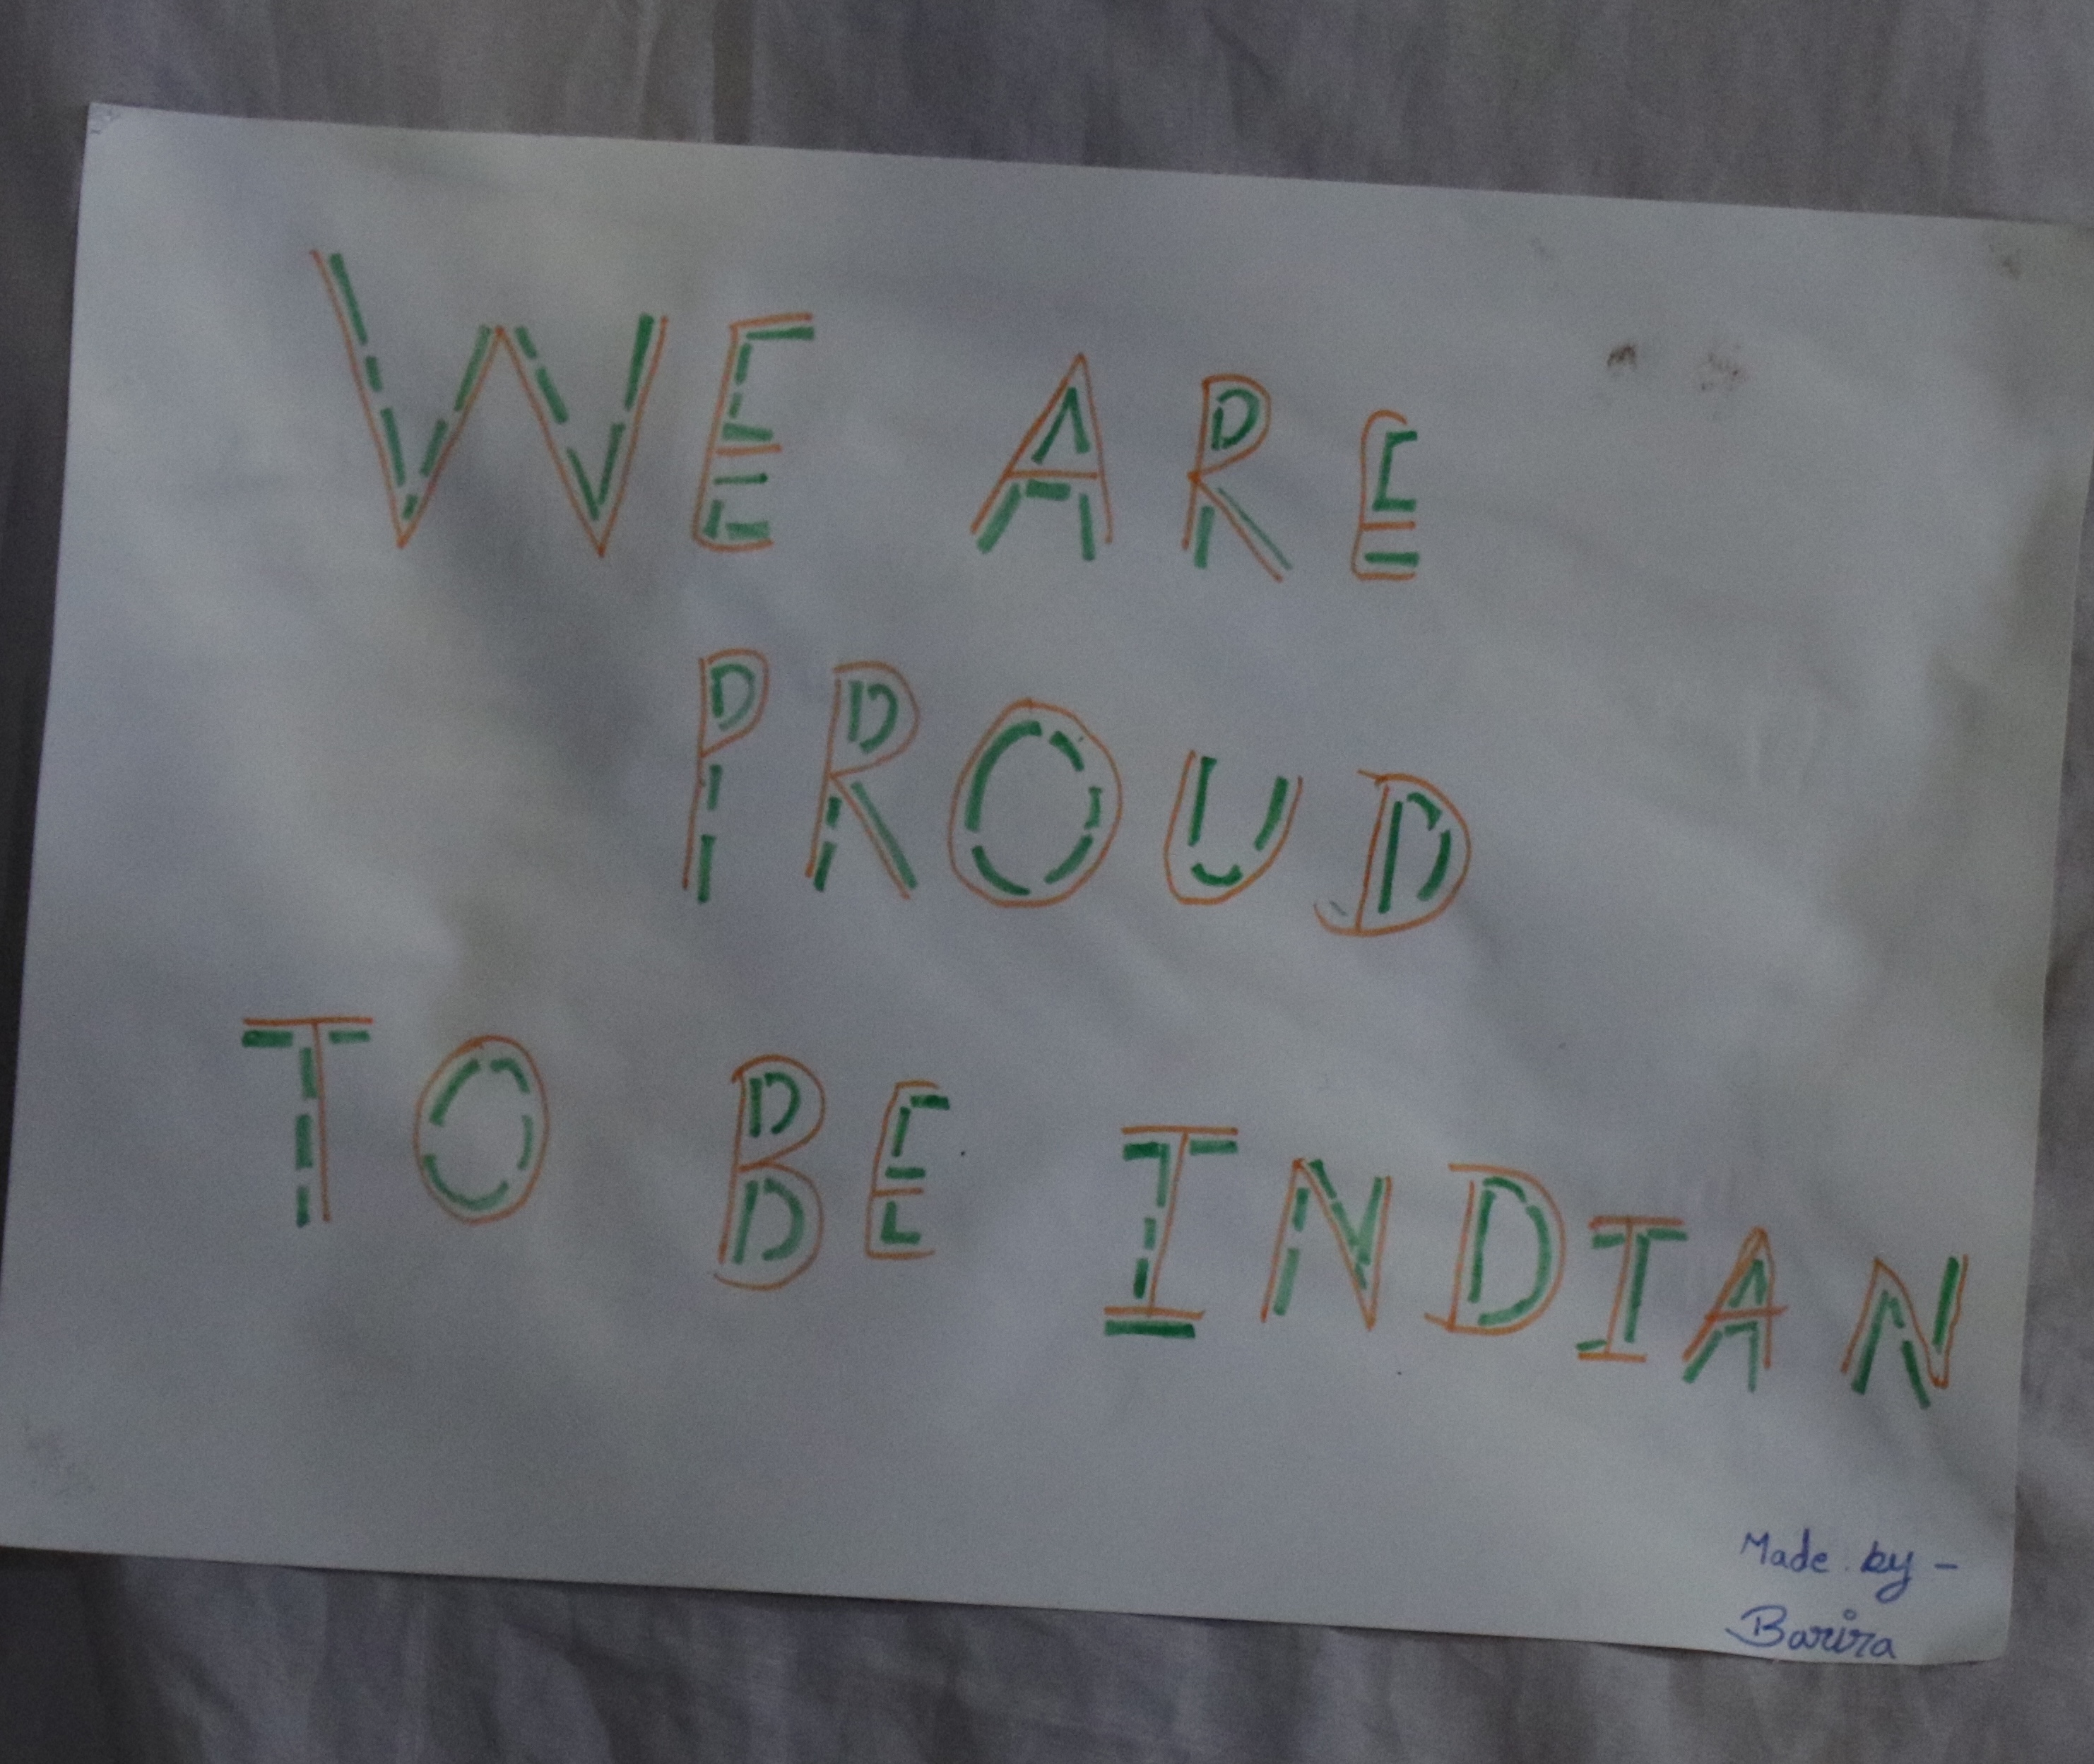 WE ARE
PROUD
TO BE INDIAN
Made by -
Barira